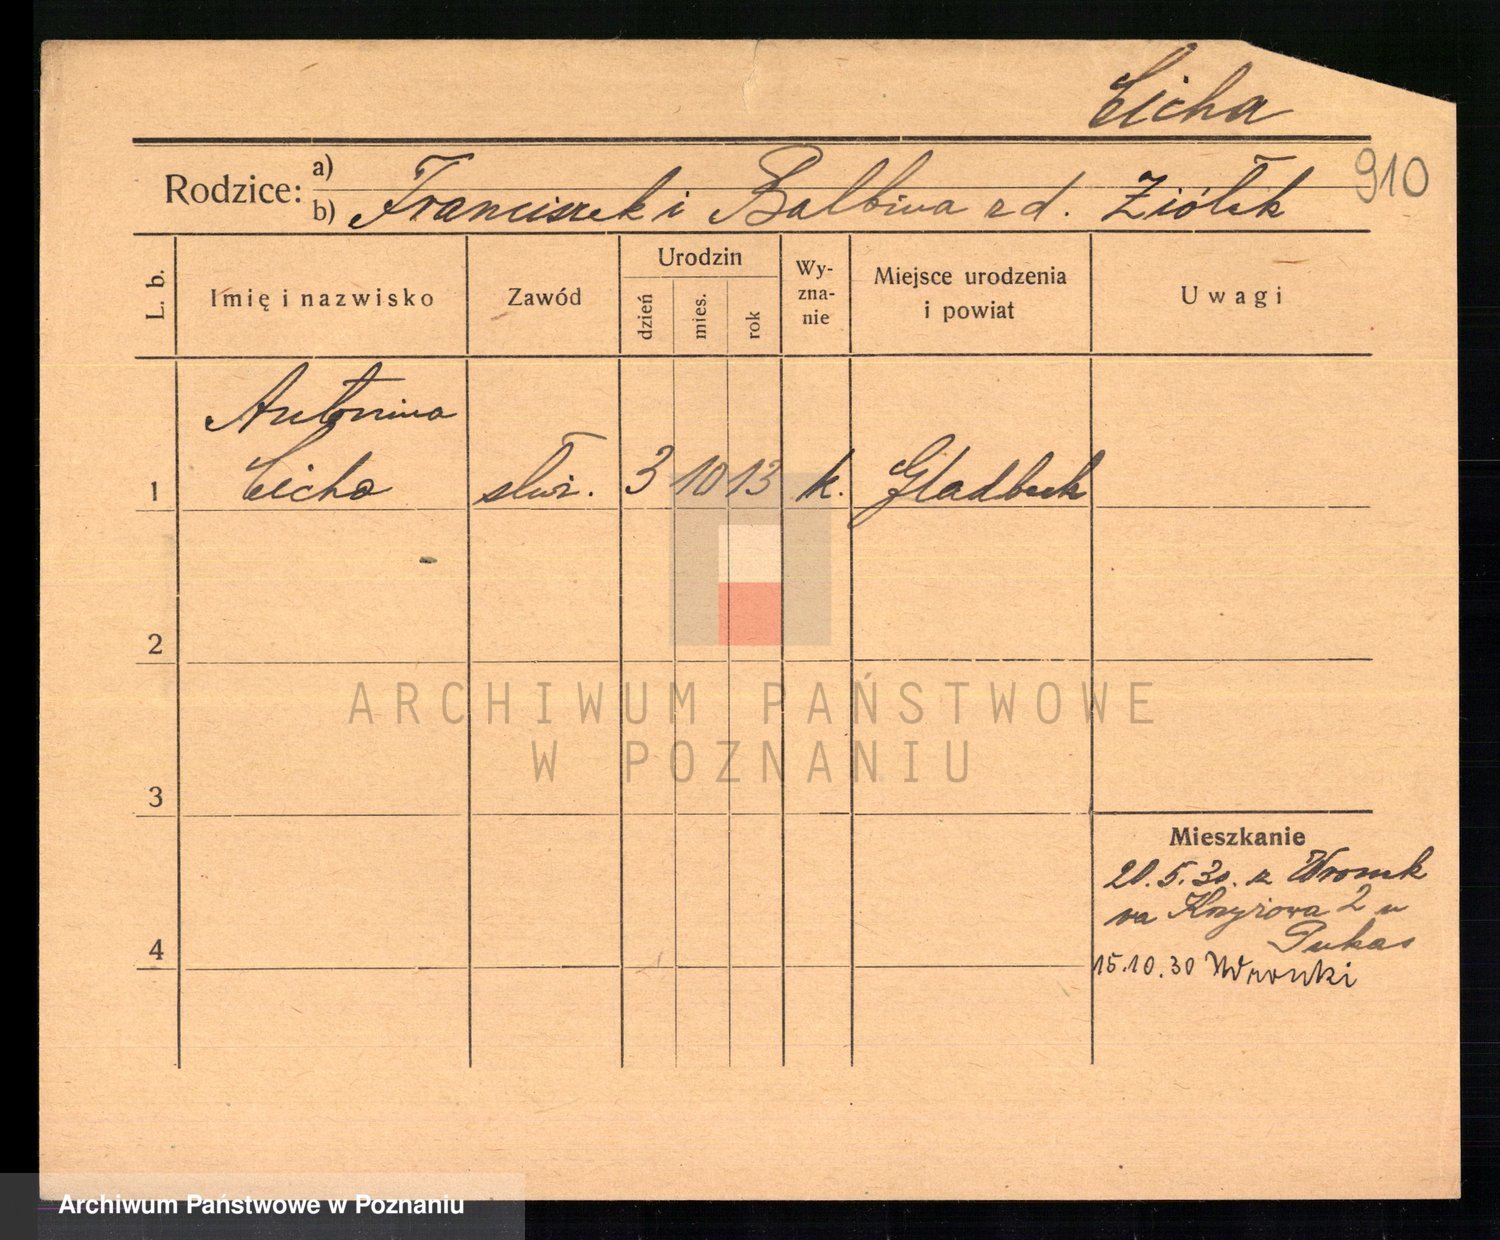 Cicha
910
Rodzice:
a)
b) Franciszek i Balbina zd. Ziółek
L. b.
Imię i nazwisko
Zawód
Urodzin
dzień
mies.
rok
Wy-
zna-
nie
Miejsce urodzenia
i powiat
Uwagi
Antonina
1 Cicha służ. 3 10 13 k. Gladbeck
2
3
4
Mieszkanie
20.5.30. z Wronek
na Krzyżowa 2 u
15.10.30 Wronki
ARCHIWUM PAŃSTWOWE
W POZNANIU
Archiwum Państwowe w Poznaniu